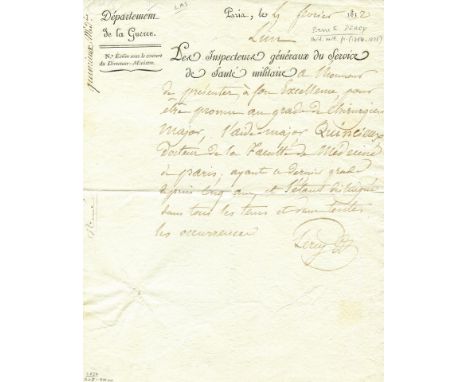 Département
de la Guerre.
N.a Ecrire sous le couvert
du Directeur-Ministre.
LAS
Paris, le 4 février 1812
Pierre F. PERCY
Les Inspecteurs généraux du Service
de Santé militaire a l'honneur
de présenter à son Excellence, pour
être promu au grade de chirurgien
major, l'aide-major Quincieux
docteur de la Faculté de Médecine
de paris; ayant ce dernier grade
depuis cinq ans, et s'étant distingué
dans tous les tems et dans toutes
les occurrences
Percy